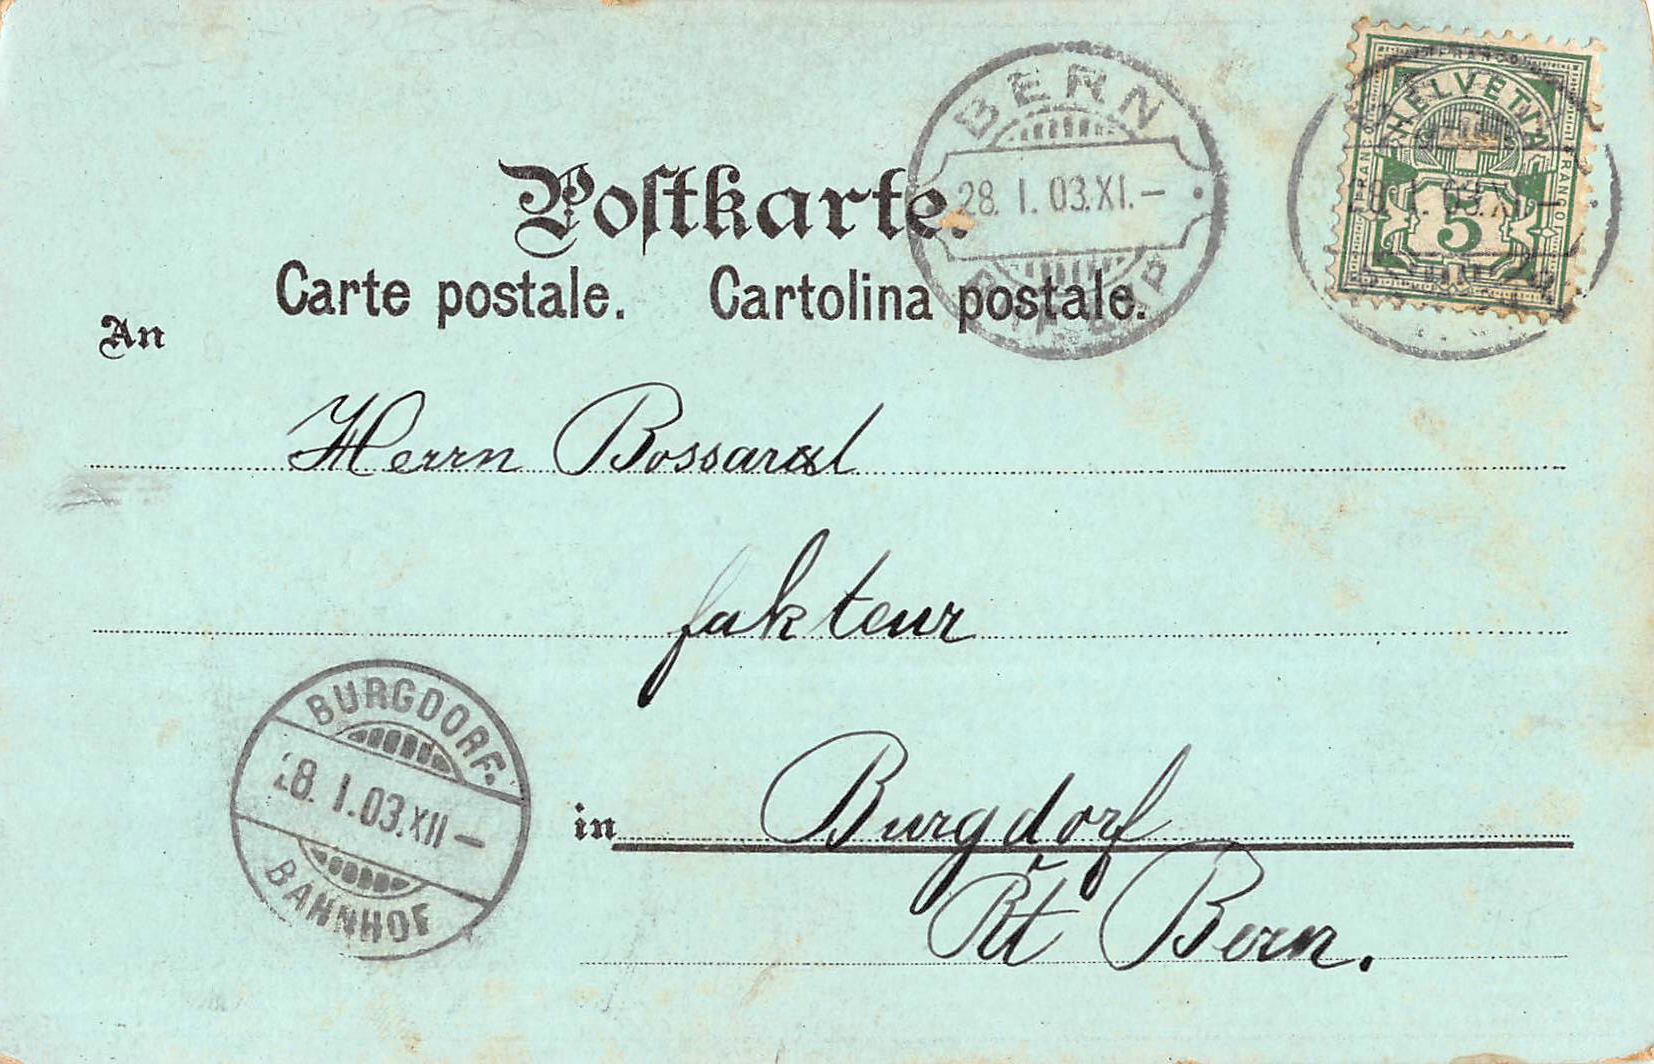 Postkarte.
Carte postale. Cartolina postale.
An
Herrn Bossard
fakteur
in Burgdorf
Kt Bern.
BERN
28. I. 03. XI. –
FRANCO
HELVETIA
FRANCO
FRANCO
5
28. I. 03. XI. –
BURGDORF.
28. I. 03. XII –
BAHNHOF